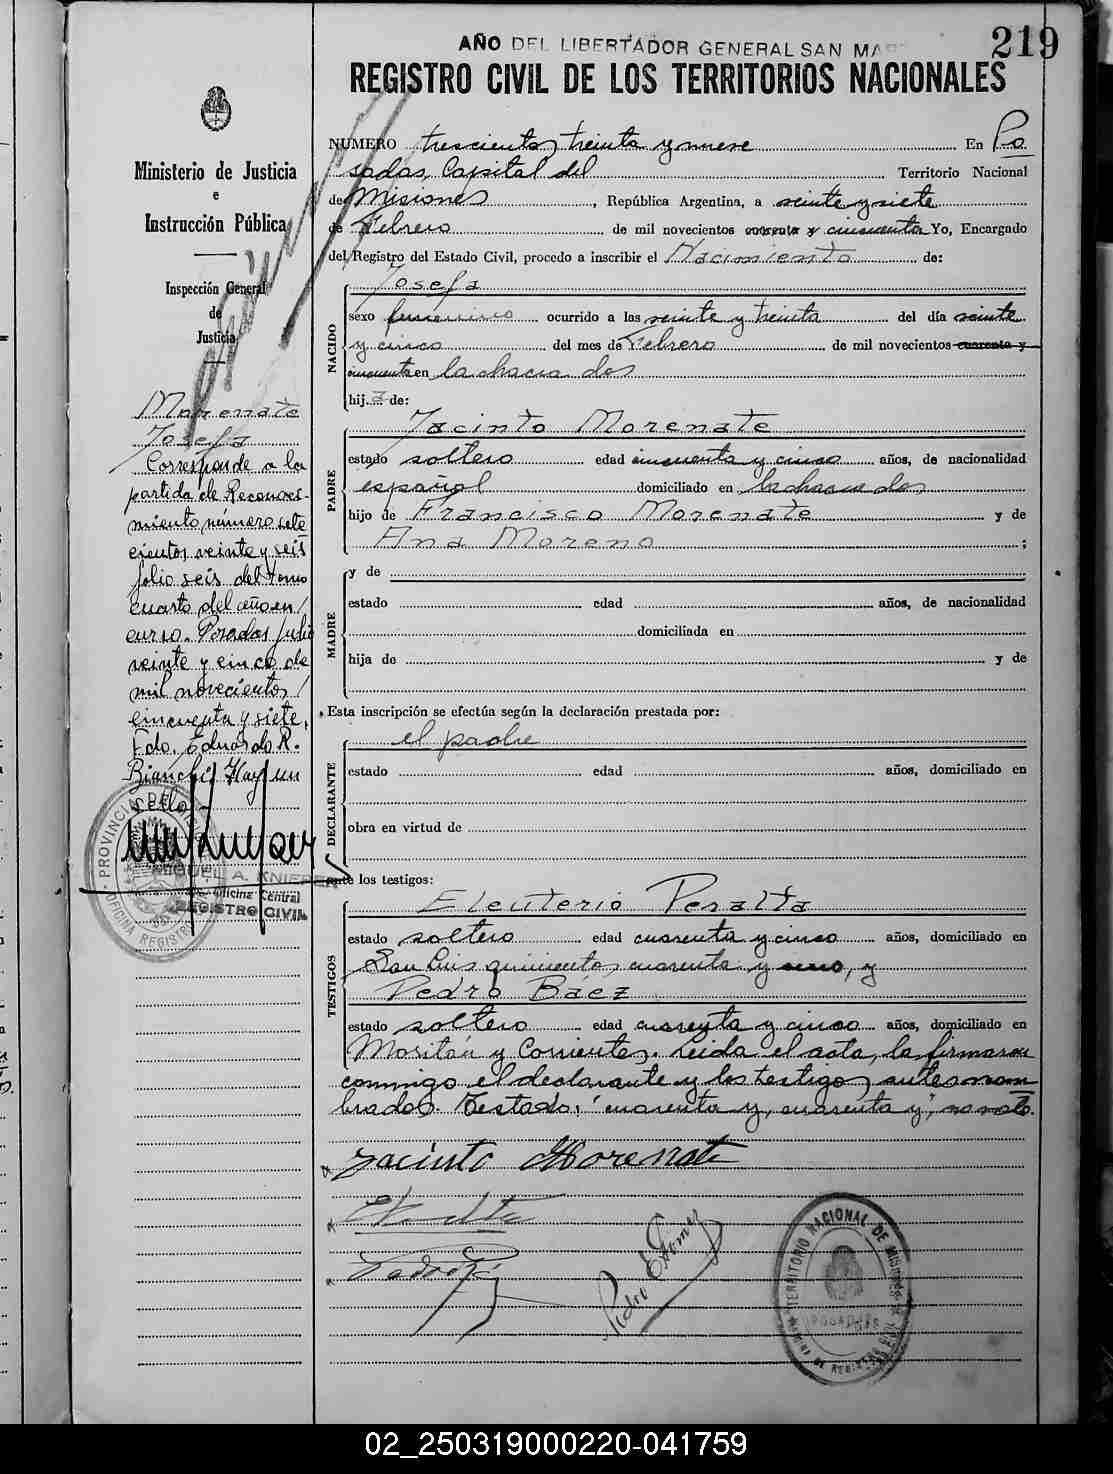 219
AÑO DEL LIBERTADOR GENERAL SAN MAR
REGISTRO CIVIL DE LOS TERRITORIOS NACIONALES
Ministerio de Justicia
e
Instrucción Pública
Inspección General
de
Justicia
Morenate
Josefa
Corresponde a la
partida de Reconoci-
miento número sete
cientos veinte y seis
folio seis del tomo
cuarto del año en
curso. Posadas Julio
veinte y cinco de
mil novecientos
cincuenta y siete.
Fdo. Eduardo R.
Bianchi. Hay un
sello.
PROVINCIA DE MISIONES
OFICINA REGISTRO
MIGUEL A. KNIEPER
Oficina Central
REGISTRO CIVIL
NUMERO trescientos treinta y nueve En Po
sadas, Capital del Territorio Nacional
de Misiones, República Argentina, a veinte y siete
de Febrero de mil novecientos cuarenta y cincuenta Yo, Encargado
del Registro del Estado Civil, procedo a inscribir el Nacimiento de:
NACIDO
Josefa
sexo femenino ocurrido a las veinte y treinta del día veinte
y cinco del mes de Febrero de mil novecientos cuarenta y
cincuenta en la chacra dos
hij a de:
PADRE
Jacinto Morenate
estado soltero edad cincuenta y cinco años, de nacionalidad
español domiciliado en la chacra dos
hijo de Francisco Morenate y de
Ana Moreno ;
MADRE
y de
estado edad años, de nacionalidad
domiciliada en
hija de y de
Esta inscripción se efectúa según la declaración prestada por:
DECLARANTE
el padre
estado edad años, domiciliado en
obra en virtud de
ante los testigos:
TESTIGOS
Eleuterio Peralta
estado soltero edad cuarenta y cinco años, domiciliado en
San Luis quinientos cuarenta y uno, y
Pedro Báez
estado soltero edad cuarenta y cinco años, domiciliado en
Moritán y Corrientes. Leida el acta, la firmaron
conmigo el declarante y los testigos antes nom
brados. Testado: "cuarenta y, cuarenta y", no vale.
Jacinto Morenate
Pedro E Gomez
TERRITORIO NACIONAL DE MISIONES
POSADAS
02_250319000220-041759